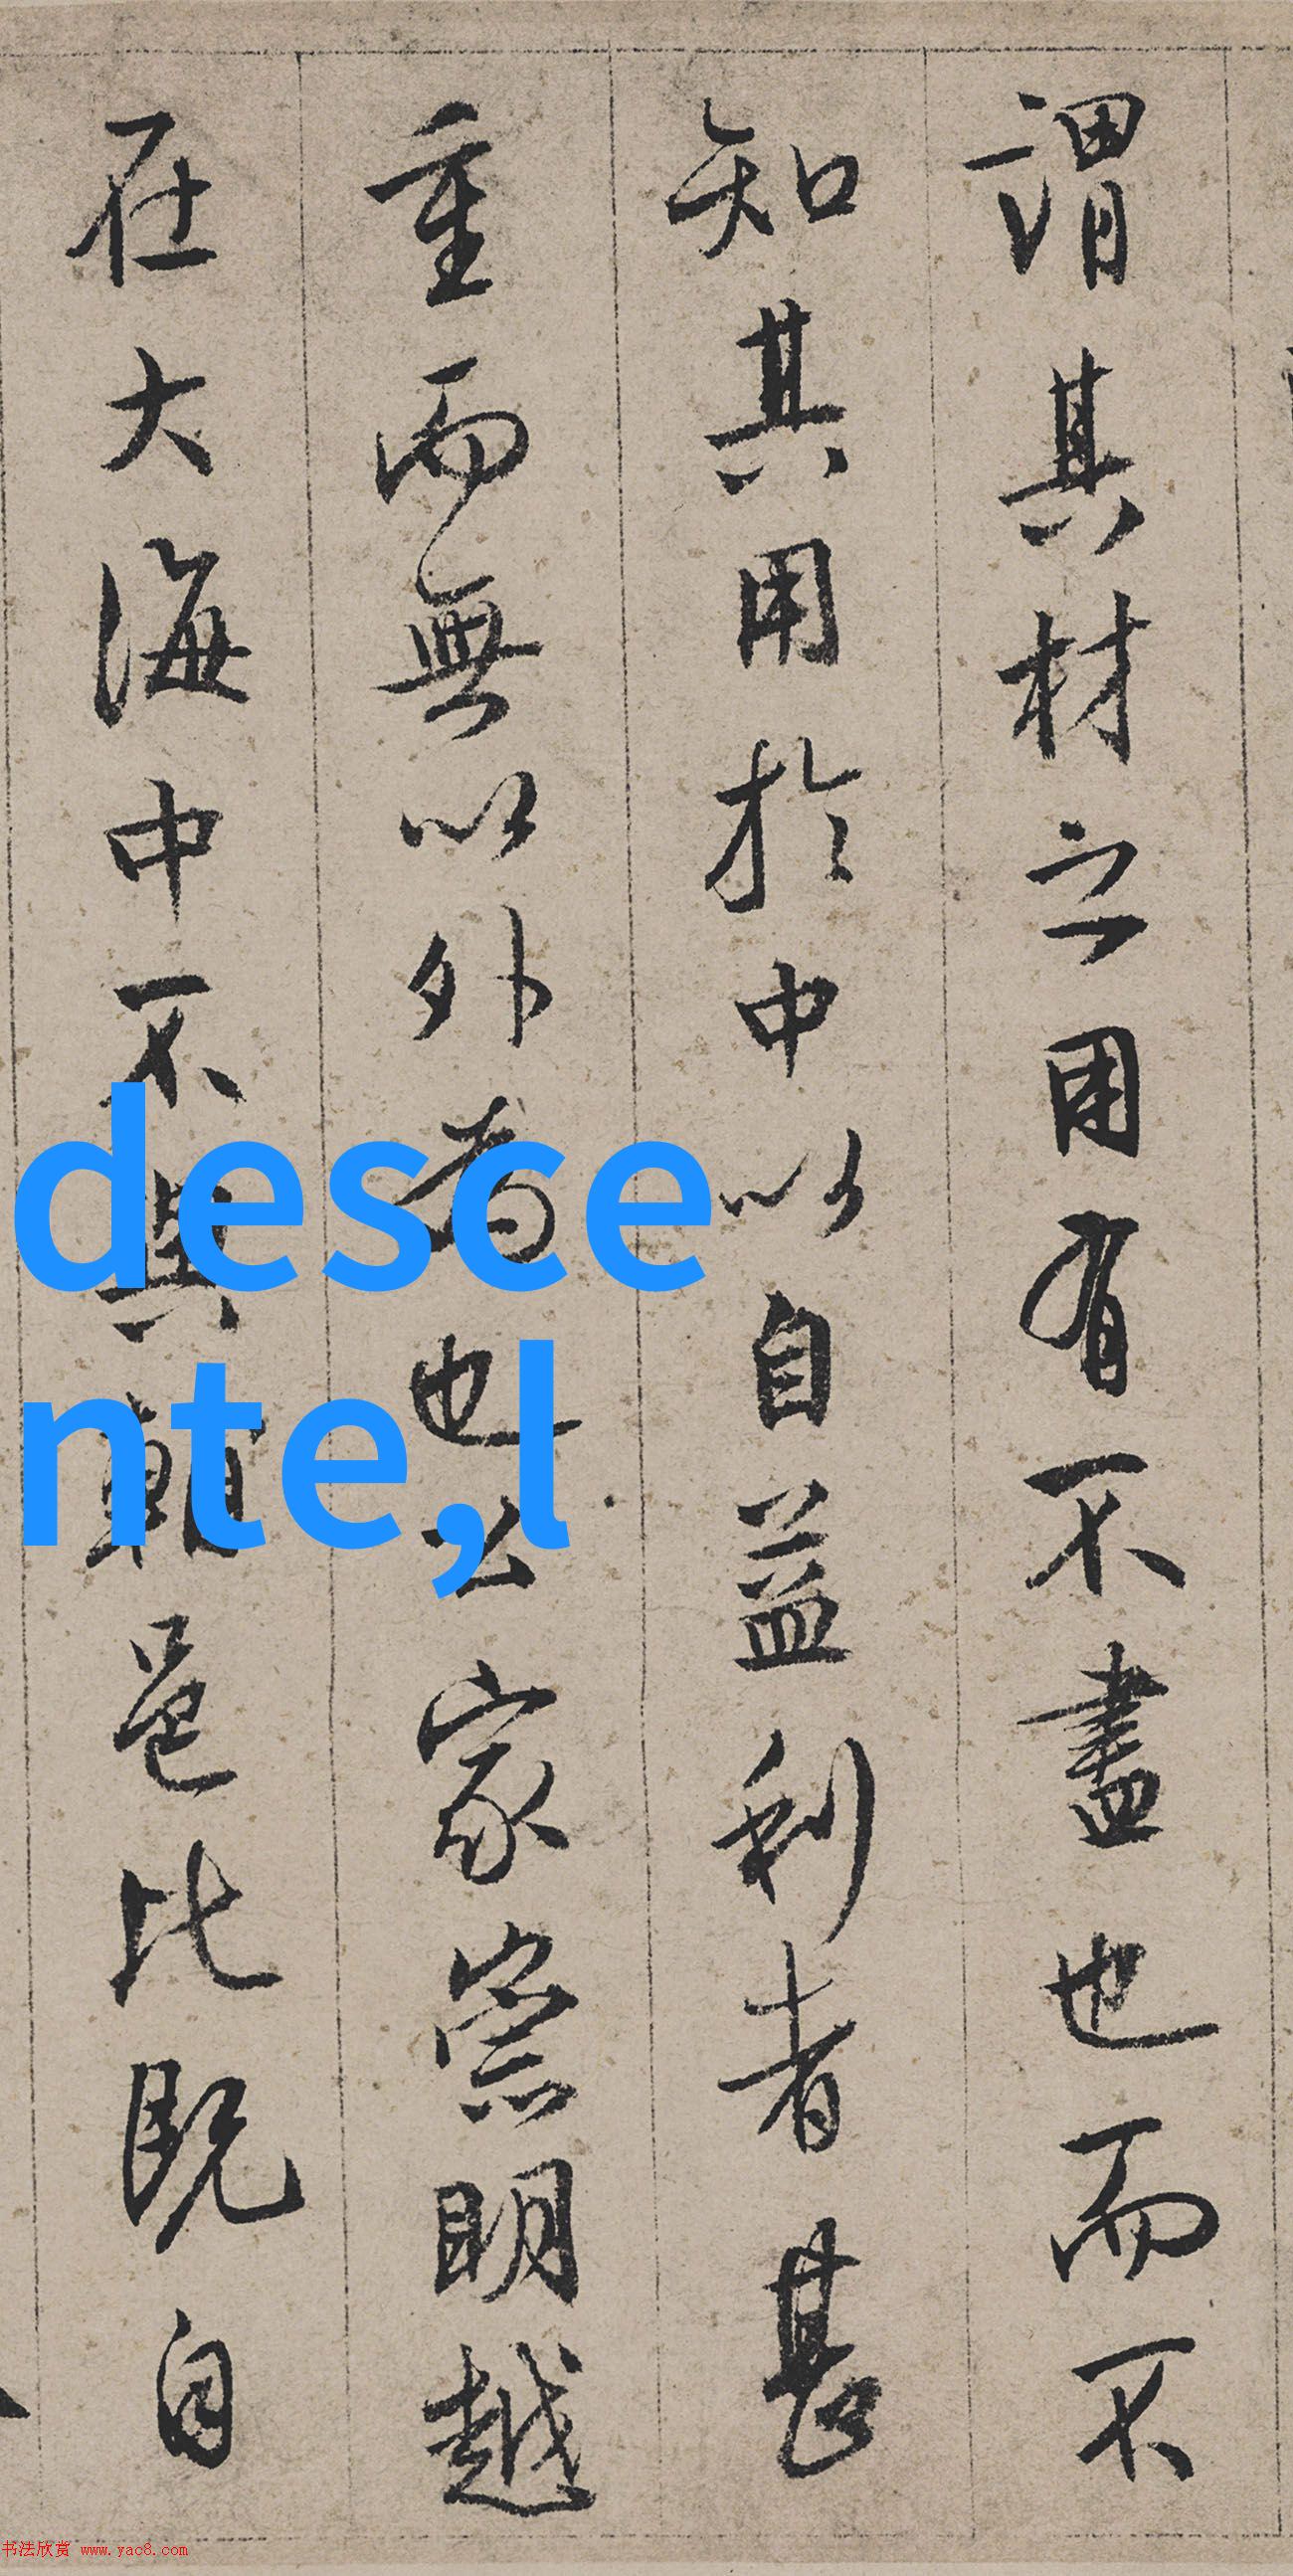 謂其材之用有不盡也而不
知其用於中以自益利者甚
重而無以外為也公家崇明越
在大海中不與邑比既自
desce
nte,l
书法欣赏 www.yac8.com